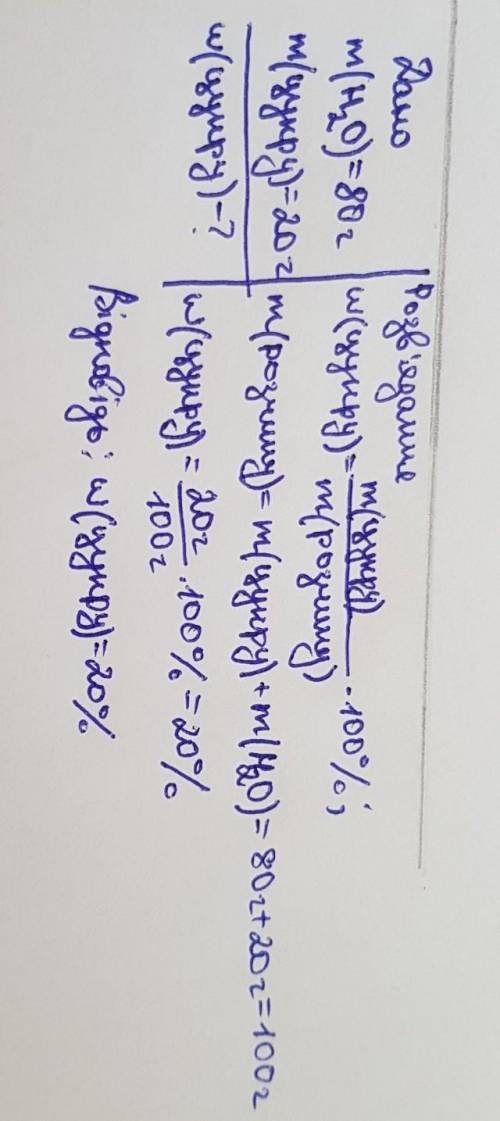 Дано
m(H₂O)=80г
m(цукру)=20г
w(цукру)-?
Розв'язання
w(цукру)= m(цукру)/m(розчину) · 100%;
m(розчину)= m(цукру)+m(H₂O)=80г+20г=100г
w(цукру)= 20г/100г · 100%=20%
Відповідь: w(цукру)=20%